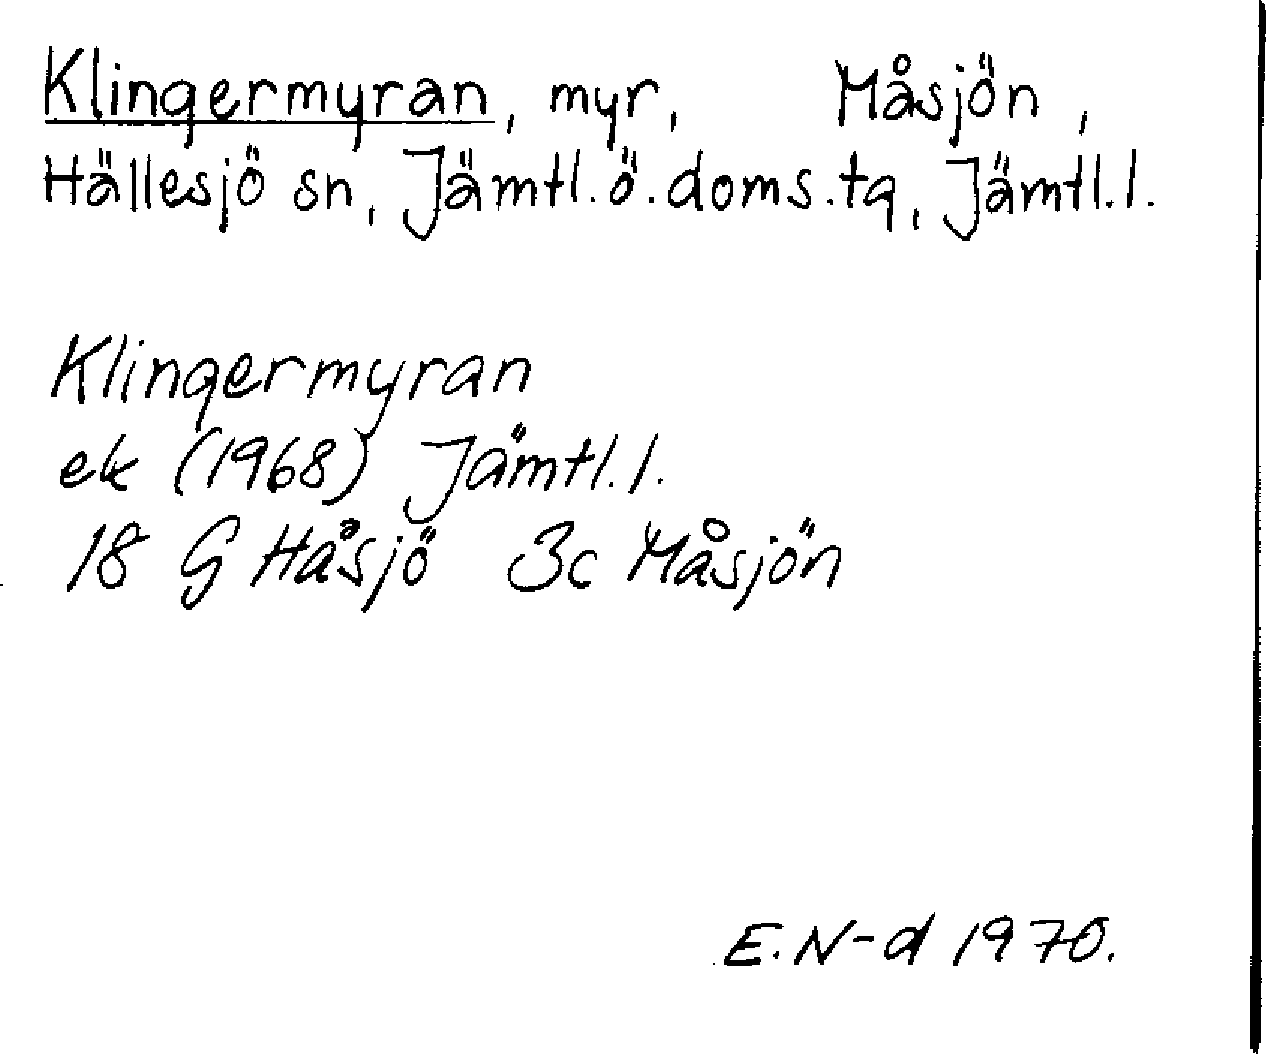 Klingermyran, myr, Måsjön,
Hällesjö sn, Jämtl.ö.doms.tg, Jämtl.l.
Klingermyran
ek (1968) Jämtl.l.
18 G Håsjö 3c Måsjön
E.N-d 1970.